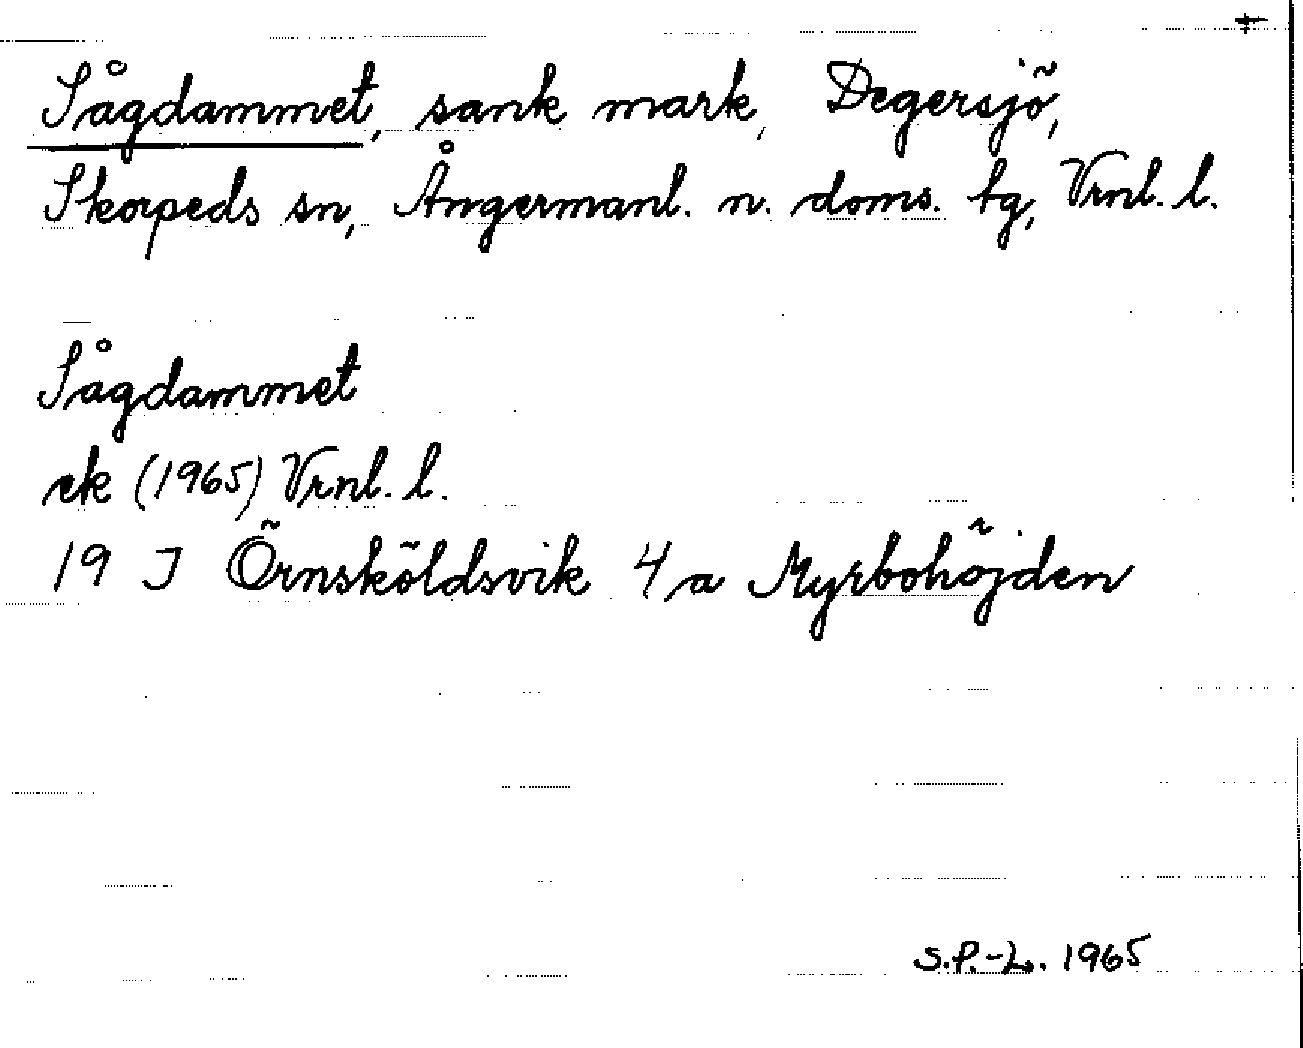 Sågdammet, sank mark, Degersjö,
Skorpeds sn, Ångermanl. n. doms. tg, Vrnl. l.
Sågdammet
ek (1965) Vrnl. l.
19 J Örnsköldsvik 4 a Myrbohöjden
S.P.-L. 1965